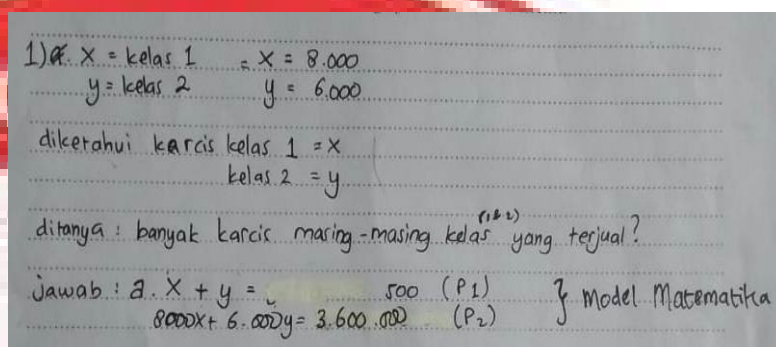 1) a. x = kelas 1 = x = 8.000
y = kelas 2 y = 6.000
diketahui karcis kelas 1 = x
kelas 2 = y
ditanya : banyak karcis masing-masing kelas (1 & 2) yang terjual?
Jawab : a. x + y = 500 (P1) } Model Matematika
8000x + 6.000y = 3.600.000 (P2)